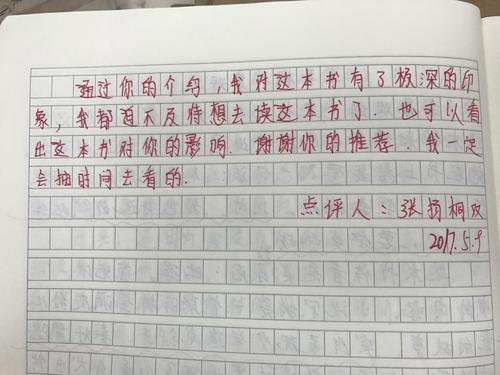 通过你的介绍，我对这本书有了极深的印
象，我都迫不及待想去读这本书了．也可以看
出这本书对你的影响．谢谢你的推荐．我一定
会抽时间去看的．
点评人：张扬桐双
2017.5.9